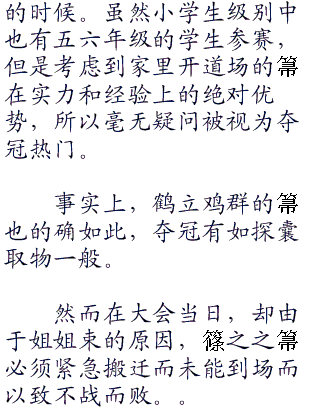 的时候。虽然小学生级别中
也有五六年级的学生参赛，
但是考虑到家里开道场的箒
在实力和经验上的绝对优
势，所以毫无疑问被视为夺
冠热门。
事实上，鹤立鸡群的箒
也的确如此，夺冠有如探囊
取物一般。
然而在大会当日，却由
于姐姐束的原因，篠之之箒
必须紧急搬迁而未能到场而
以致不战而败。。